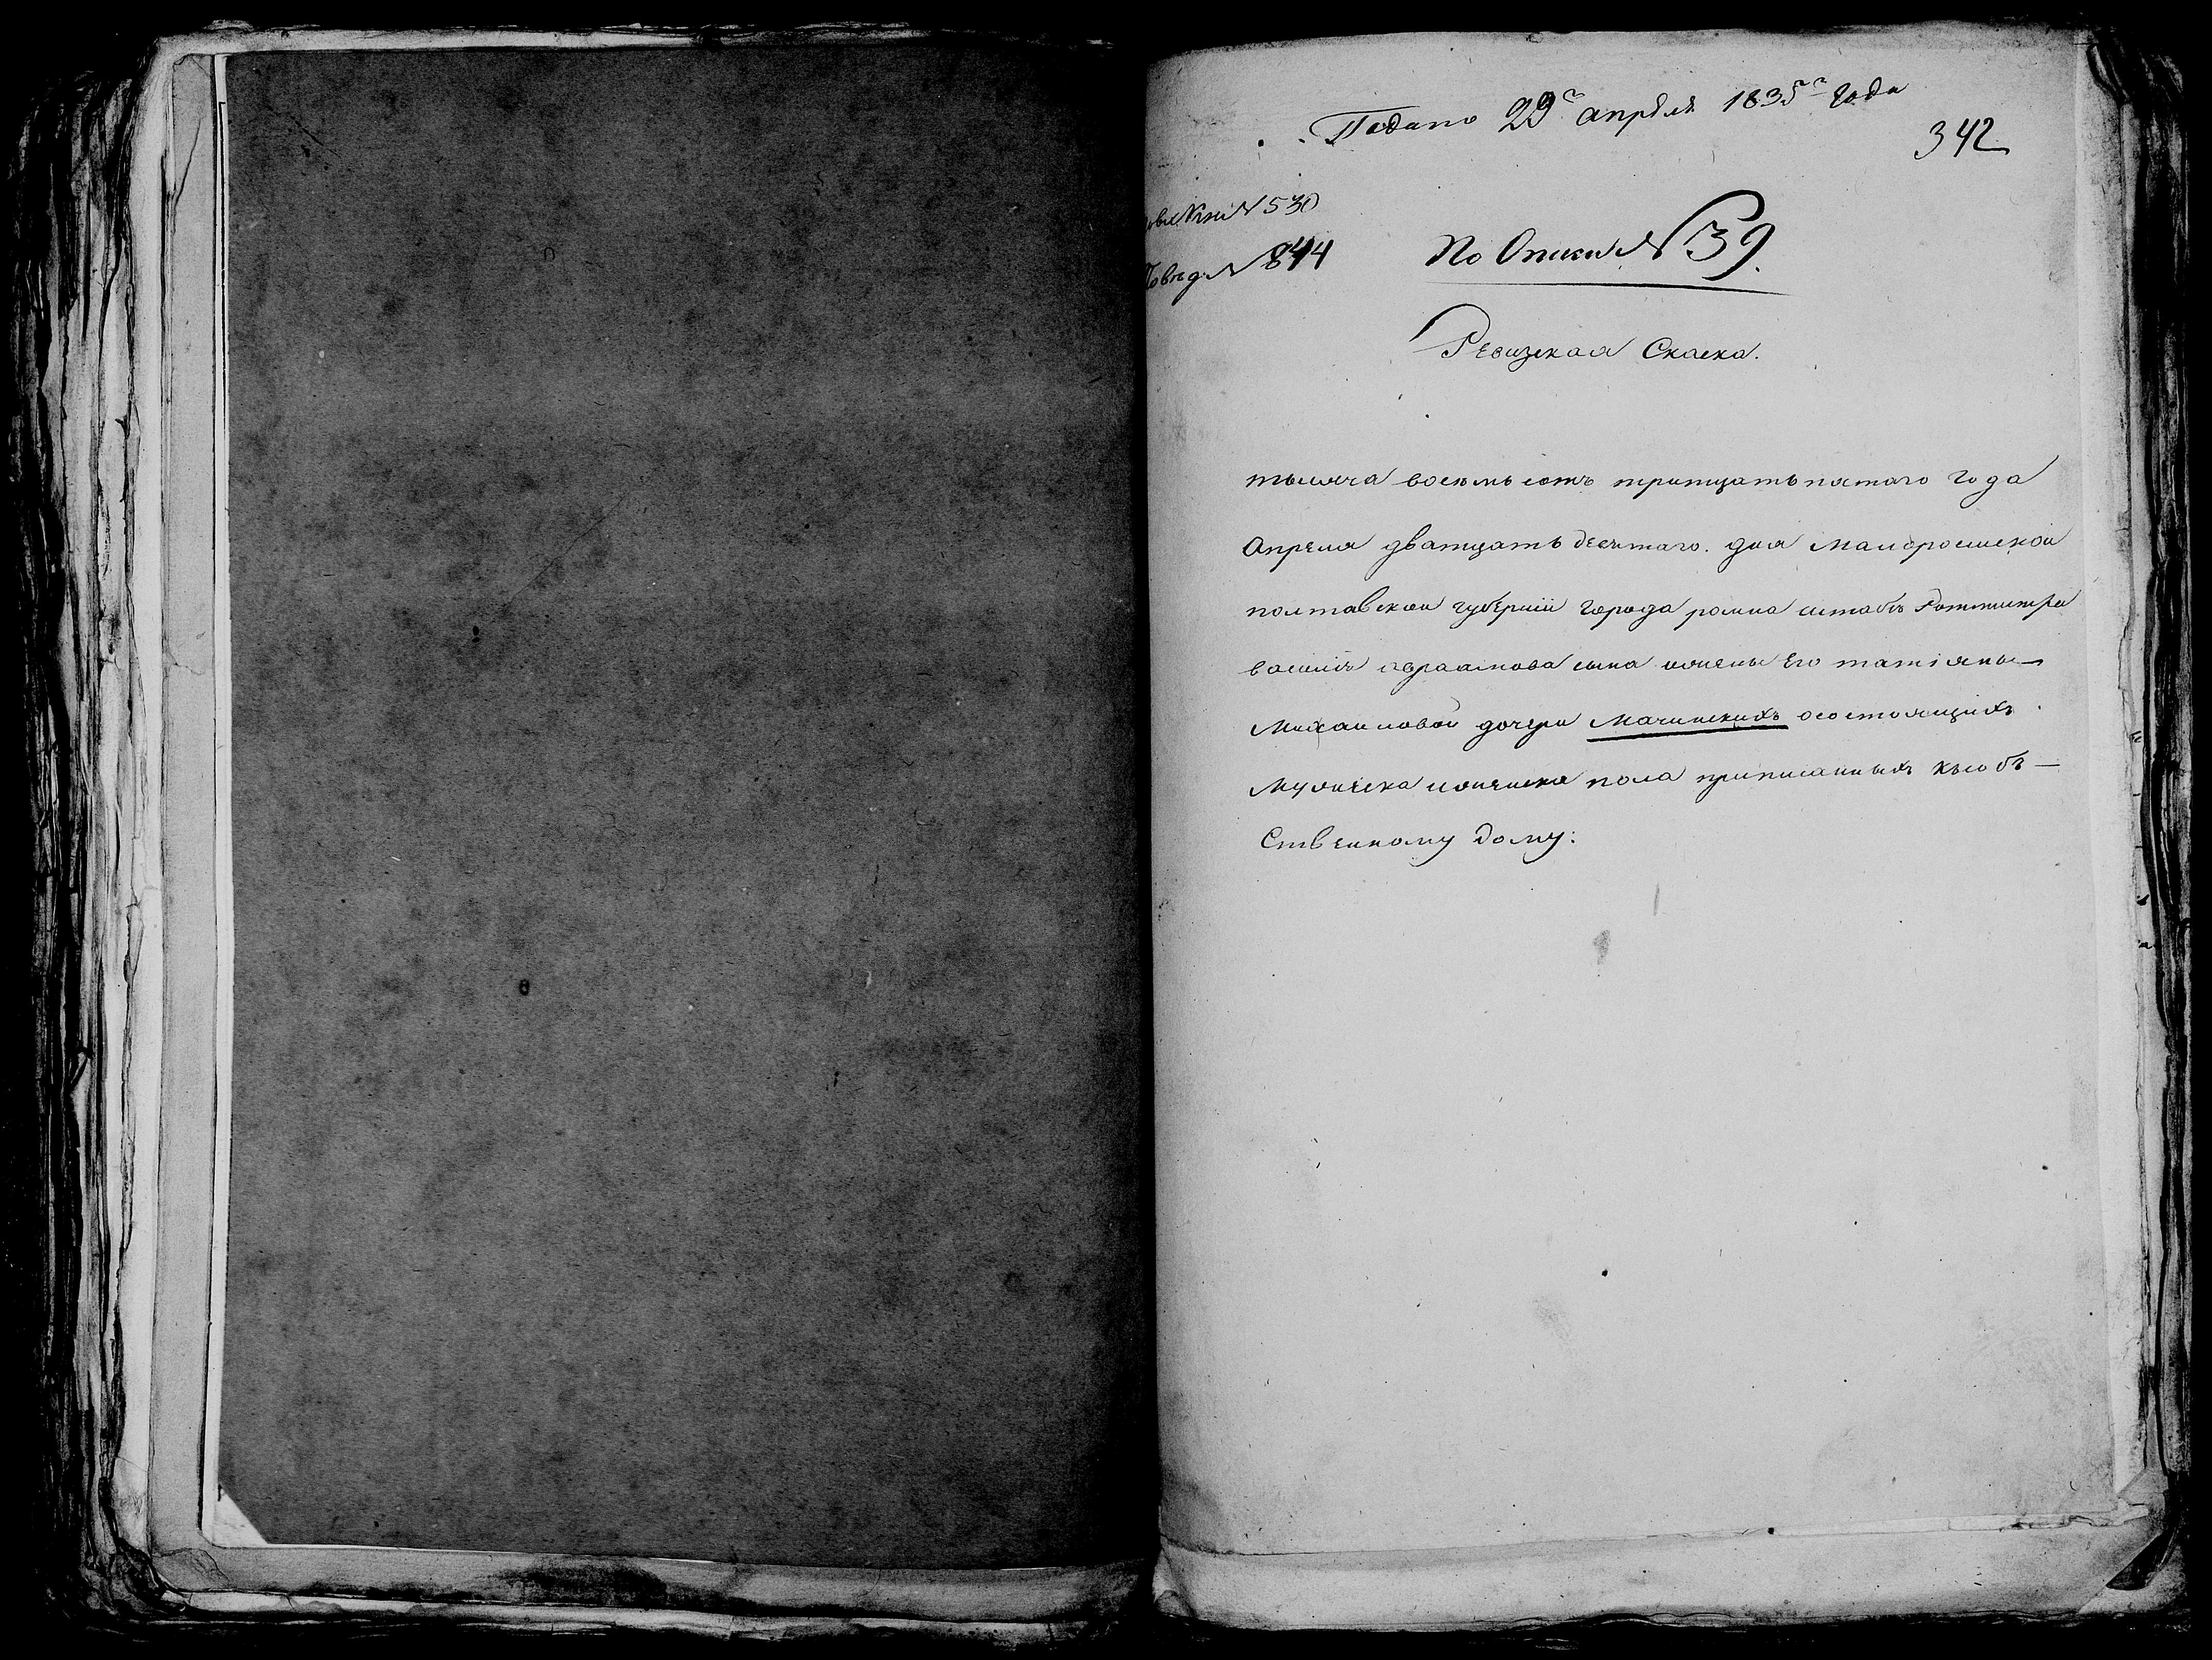 Подано 29го апреля 1835го года
342
Кни N 530
N 844
По Описи N 39.
Ревизская Скаска.
тысяча восемь сотъ тритцать пятаго года
Апреля дватцать десятаго. дня Малоросииской
полтавской губернии города ромна штабъ Ротмистра
василия авраамова сына ижены Его татияны
Михаиловой дочери Мачинскихъ осостоящихъ
Мужеска иженска пола приписанныхъ къ соб
Ственному дому: